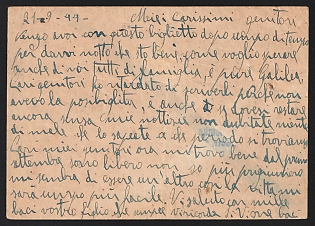 21-9-44- Miei Carissimi genitori
vengo a voi con questo biglietto dopo un po di tempo
per darvi notto che sto bene, come voglio sperare
anche di voi tutti di famiglia, e pure Galilea
Cari genitori ho ritardato di scriverli perche non
avevo la possibilità, e anche si dovese restare
ancora senza mie notizie non dubitate niente
di male che lo sapete a che periodo si troviamo
Cari miei genitori ora mi trovo bene dal primo
settembre sono libero non so più prigioniero
mi sembra di essere un altro così la vitta mi
sara un po più facile. Vi saluto con mille
baci vostro figlio che sempre vi ricorda